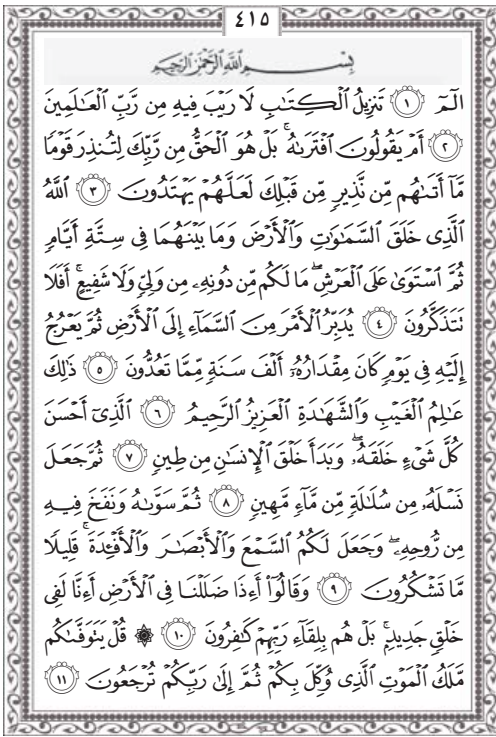 ٤١٥
بِسْمِ اللَّهِ الرَّحْمَٰنِ الرَّحِيمِ
الٓمٓ ١ تَنزِيلُ ٱلْكِتَٰبِ لَا رَيْبَ فِيهِ مِن رَّبِّ ٱلْعَٰلَمِينَ
٢ أَمْ يَقُولُونَ ٱفْتَرَىٰهُ ۚ بَلْ هُوَ ٱلْحَقُّ مِن رَّبِّكَ لِتُنذِرَ قَوْمًا
مَّآ أَتَىٰهُم مِّن نَّذِيرٍ مِّن قَبْلِكَ لَعَلَّهُمْ يَهْتَدُونَ ٣ ٱللَّهُ
ٱلَّذِى خَلَقَ ٱلسَّمَٰوَٰتِ وَٱلْأَرْضَ وَمَا بَيْنَهُمَا فِى سِتَّةِ أَيَّامٍ
ثُمَّ ٱسْتَوَىٰ عَلَى ٱلْعَرْشِ ۖ مَا لَكُم مِّن دُونِهِۦ مِن وَلِىٍّ وَلَا شَفِيعٍ ۚ أَفَلَا
تَتَذَكَّرُونَ ٤ يُدَبِّرُ ٱلْأَمْرَ مِنَ ٱلسَّمَآءِ إِلَى ٱلْأَرْضِ ثُمَّ يَعْرُجُ
إِلَيْهِ فِى يَوْمٍ كَانَ مِقْدَارُهُۥٓ أَلْفَ سَنَةٍ مِّمَّا تَعُدُّونَ ٥ ذَٰلِكَ
عَٰلِمُ ٱلْغَيْبِ وَٱلشَّهَٰدَةِ ٱلْعَزِيزُ ٱلرَّحِيمُ ٦ ٱلَّذِىٓ أَحْسَنَ
كُلَّ شَىْءٍ خَلَقَهُۥ ۖ وَبَدَأَ خَلْقَ ٱلْإِنسَٰنِ مِن طِينٍ ٧ ثُمَّ جَعَلَ
نَسْلَهُۥ مِن سُلَٰلَةٍ مِّن مَّآءٍ مَّهِينٍ ٨ ثُمَّ سَوَّىٰهُ وَنَفَخَ فِيهِ
مِن رُّوحِهِۦ ۖ وَجَعَلَ لَكُمُ ٱلسَّمْعَ وَٱلْأَبْصَٰرَ وَٱلْأَفْـِٔدَةَ ۚ قَلِيلًا
مَّا تَشْكُرُونَ ٩ وَقَالُوٓا۟ أَءِذَا ضَلَلْنَا فِى ٱلْأَرْضِ أَءِنَّا لَفِى
خَلْقٍ جَدِيدٍۭ ۚ بَلْ هُم بِلِقَآءِ رَبِّهِمْ كَٰفِرُونَ ١٠ ۞ قُلْ يَتَوَفَّىٰكُم
مَّلَكُ ٱلْمَوْتِ ٱلَّذِى وُكِّلَ بِكُمْ ثُمَّ إِلَىٰ رَبِّكُمْ تُرْجَعُونَ ١١